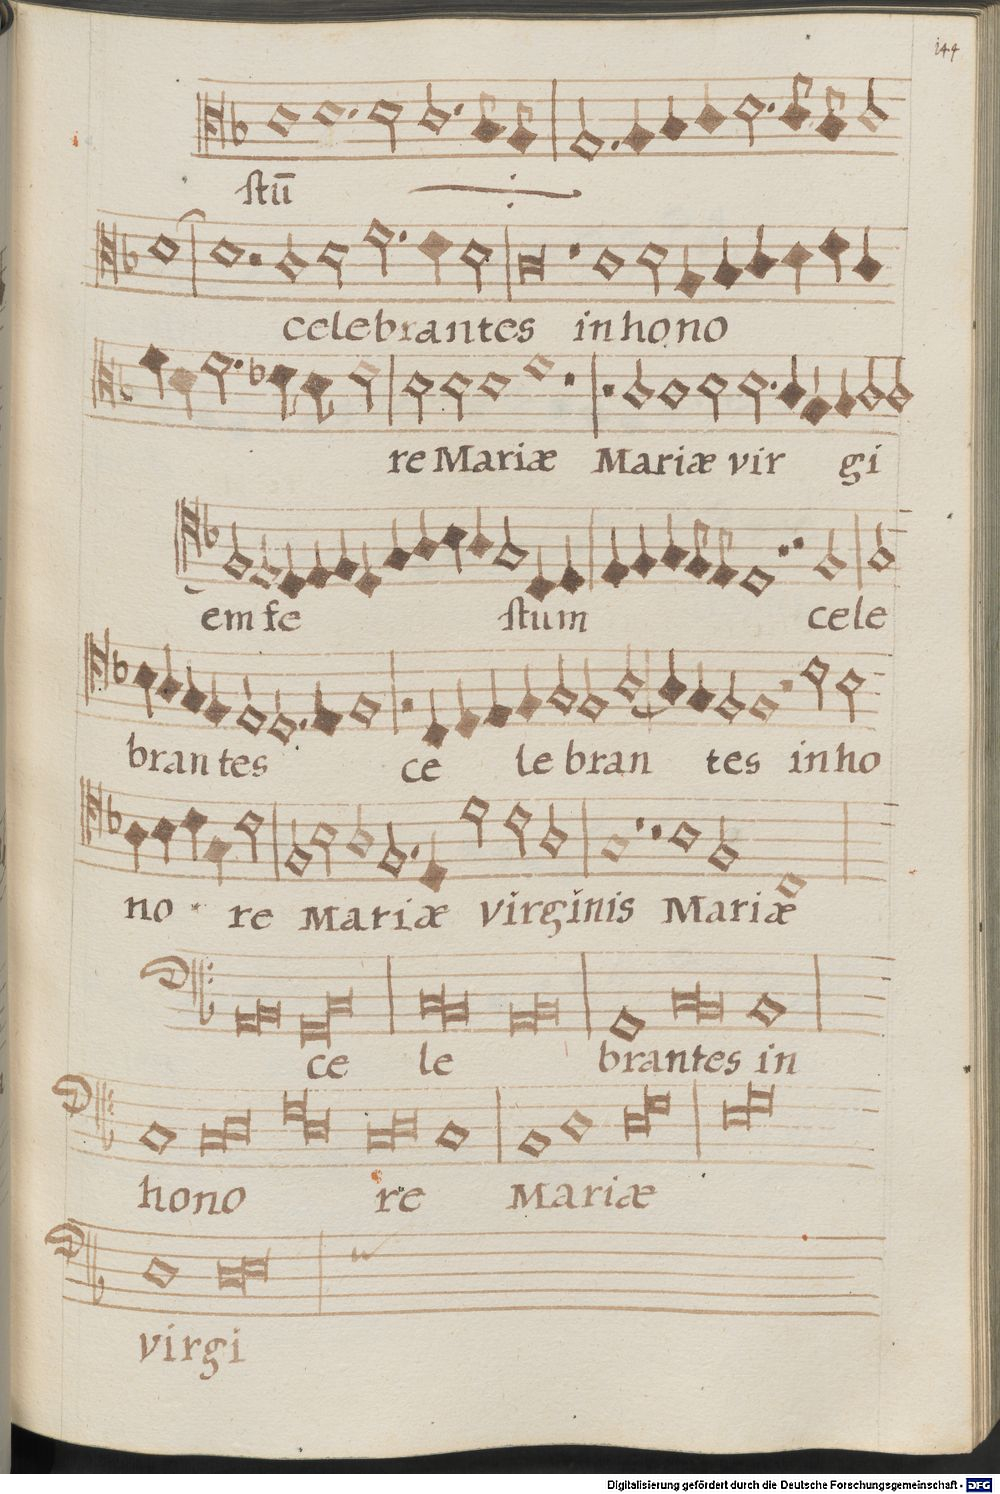 144
stū
celebrantes in hono
re Mariæ Mariæ vir gi
em fe stum cele
bran tes ce le bran tes in ho
no re Mariæ virginis Mariæ
ce le brantes in
hono re Mariæ
virgi
Digitalisierung gefördert durch die Deutsche Forschungsgemeinschaft - DFG